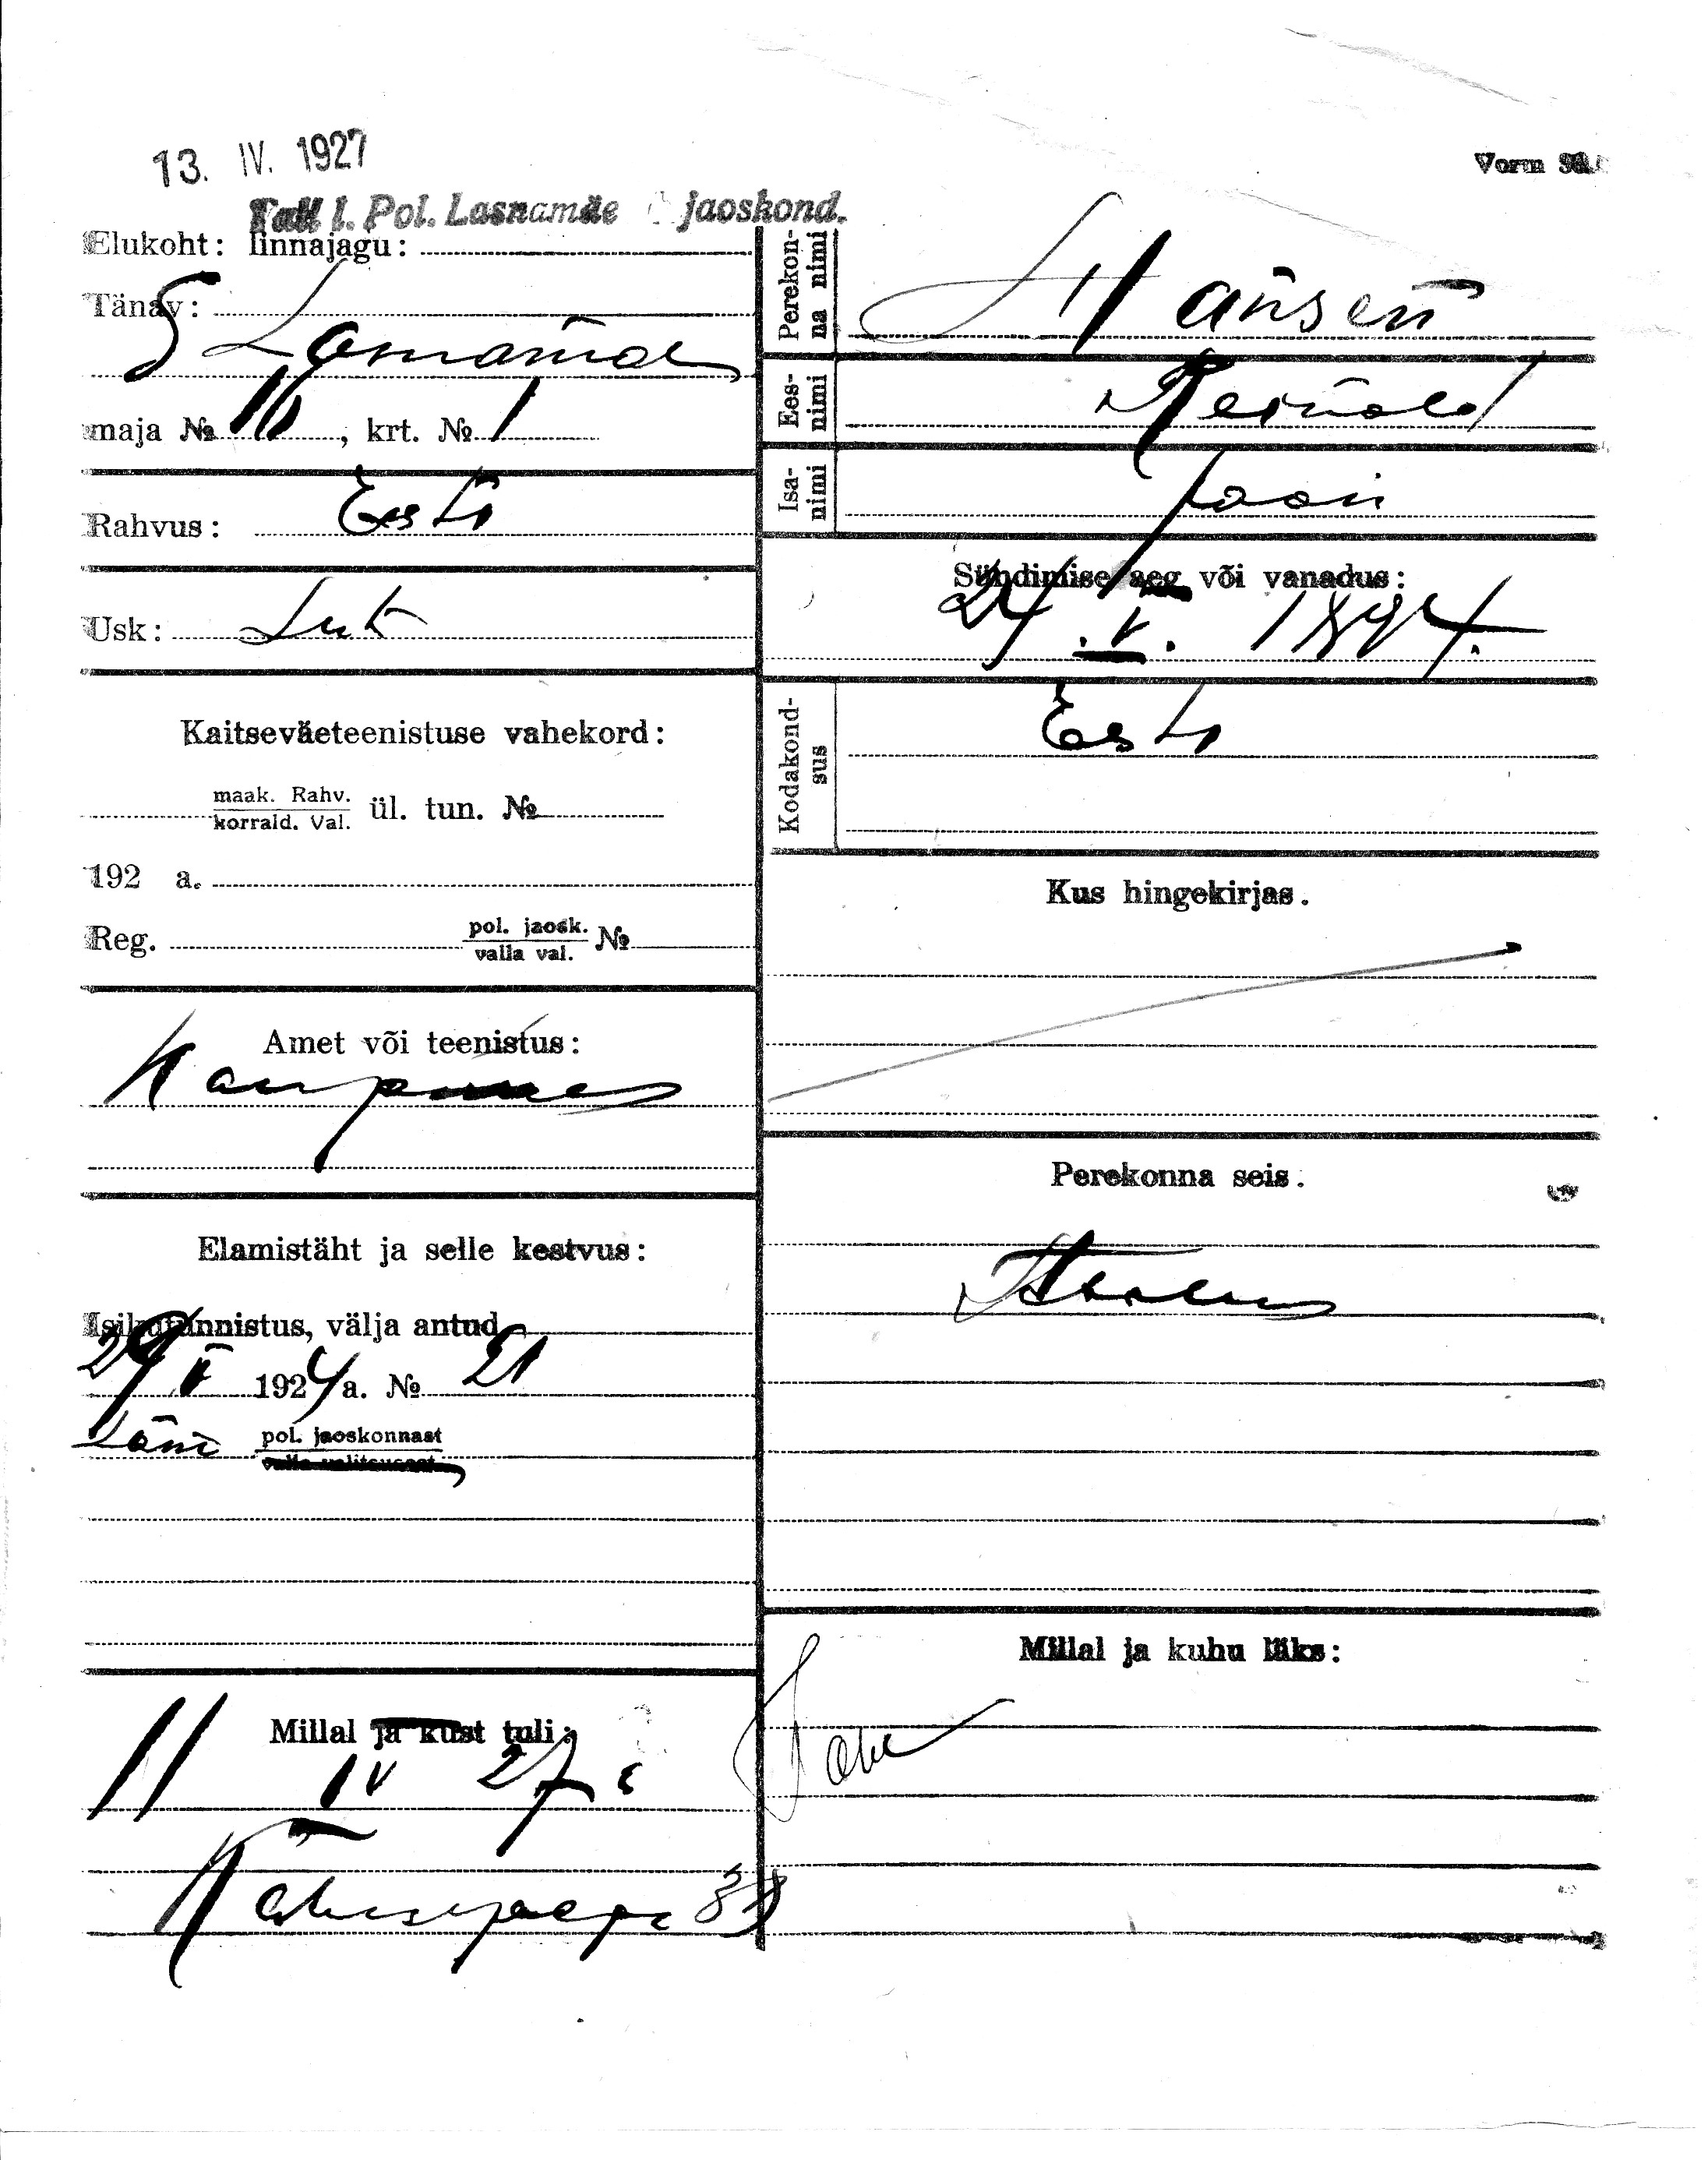 13. IV. 1927
Vorm
Tall l. Pol. Lasnamäe jaoskond.
Elukoht: linnajagu:
Tänav:
S Lasnamäe
maja № 16, krt. № 1
Rahvus: Eesti
Usk: Lut
Kaitseväeteenistuse vahekord:
maak. Rahv.
korrald. Val.
ül. tun. №
192 a.
Reg. pol. jaosk. №
valla val.
Amet või teenistus:
Kaupmees
Elamistäht ja selle kestvus:
Isikutunnistus, välja antud
29 V 1924 a. № 21
pol. jaoskonnast
valla valitsusest
Millal ja kust tuli:
11 IV 27
38
Perekon-
na nimi
Hansen
Ees-
nimi
Reinold
Isa-
nimi
Jaan
Sündimise aeg või vanadus:
24. V. 1894.
Kodakond-
sus
Eesti
Kus hingekirjas.
Perekonna seis.
Millal ja kuhu läks: